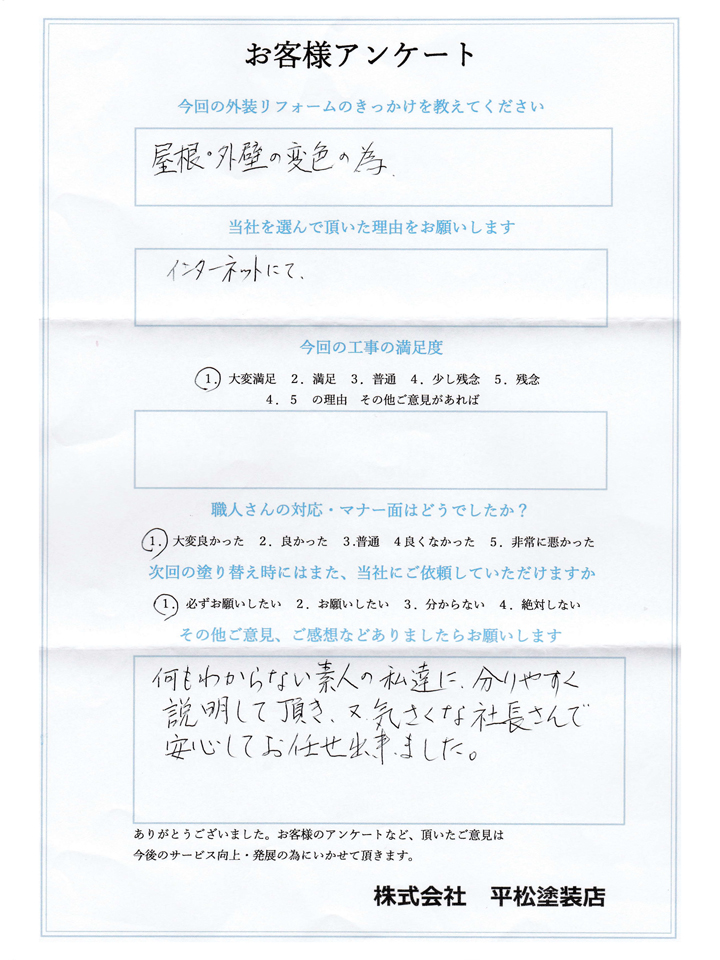 お客様アンケート
今回の外装リフォームのきっかけを教えてください
屋根・外壁の変色の為.
当社を選んで頂いた理由をお願いします
インターネットにて、
今回の工事の満足度
1. 大変満足 2. 満足 3. 普通 4. 少し残念 5. 残念
4. 5 の理由 その他ご意見があれば
職人さんの対応・マナー面はどうでしたか?
1. 大変良かった 2. 良かった 3.普通 4良くなかった 5. 非常に悪かった
次回の塗り替え時にはまた、当社にご依頼していただけますか
1. 必ずお願いしたい 2. お願いしたい 3. 分からない 4. 絶対しない
その他ご意見、ご感想などありましたらお願いします
何もわからない素人の私達に、分りやすく
説明して頂き、又、気さくな社長さんで
安心してお任せ出来ました。
ありがとうございました。お客様のアンケートなど、頂いたご意見は
今後のサービス向上・発展の為にいかせて頂きます。
株式会社 平松塗装店